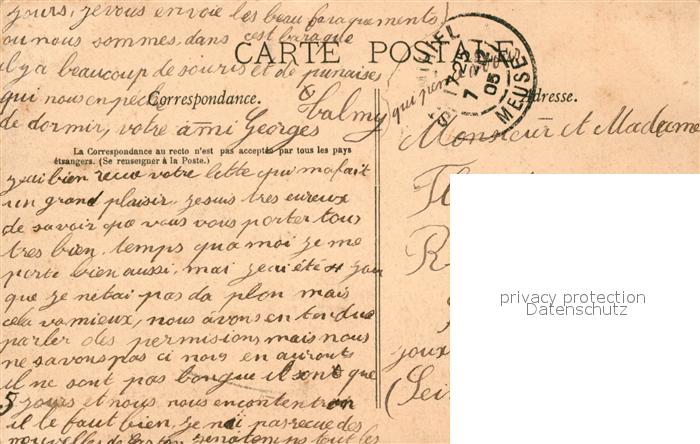 jours, je vous envoie les beau baraquements
ou nous sommes, dans cest baraque
il y a beaucoup de souris et de punaises
CARTE POSTALE
qui nous enpèche
Correspondance.
Adresse.
de dormir, votre ami Georges
MEUSE
7 05
Monsieur et Madame
La Correspondance au recto n'est pas acceptée par tous les pays
étrangers. (Se renseigner à la Poste.)
j'ai bien recue votre lette qui ma fait
un grand plaisir, je suis tres eureux
de savoir que vous vous porter tous
tres bien, temps qua moi je me
porte bien aussi, mai j'ai été 4 jour
que je netai pas da plon mais
cela va mieux, nous avons entendue
parler des permisions mais nous
ne savons pas ci nous en aurons
il ne sont pas longue il sont que
5 jours et nous nous encontentron
il le faut bien, je nai pas recue des
nouvelles de tout les
privacy protection
Datenschutz